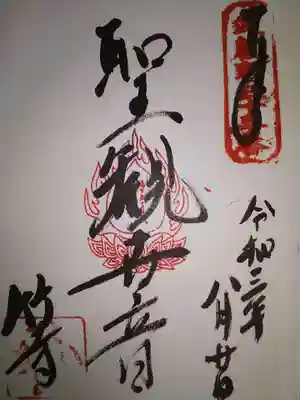 奉拝
聖観世音
令和二年
八月廿日
竹寺